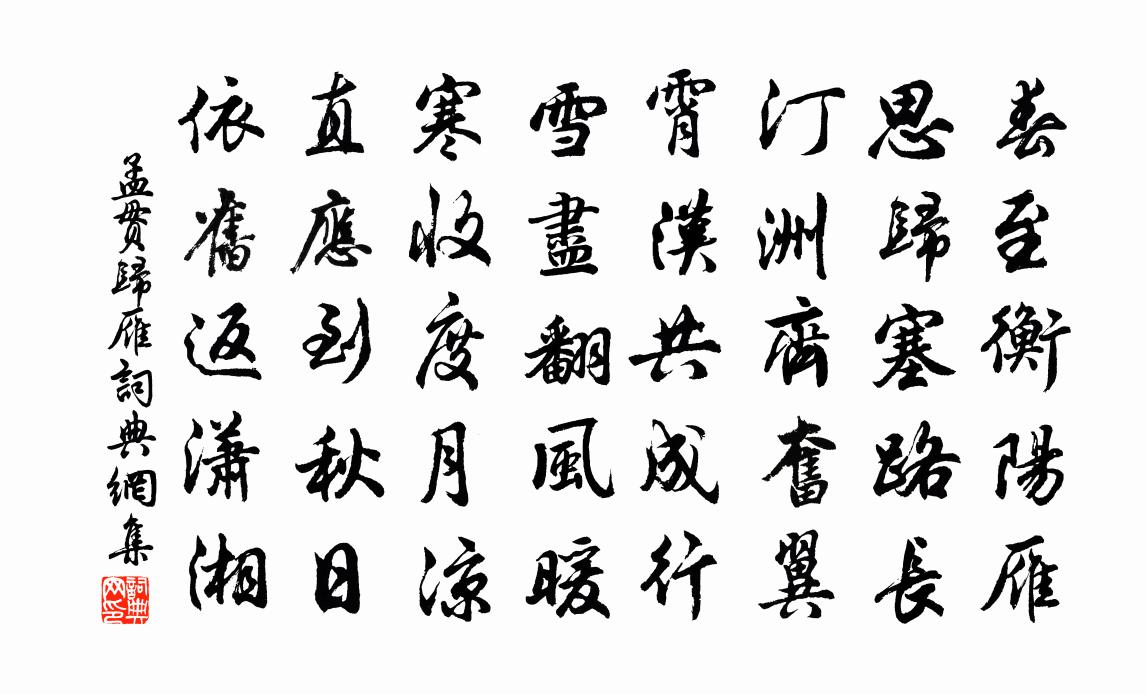 春至衡陽雁
思歸塞路長
汀洲齊奮翼
霄漢共成行
雪盡翻風暖
寒收度月涼
直應到秋日
依舊返瀟湘
孟貫歸雁詞典網集
詞典網印